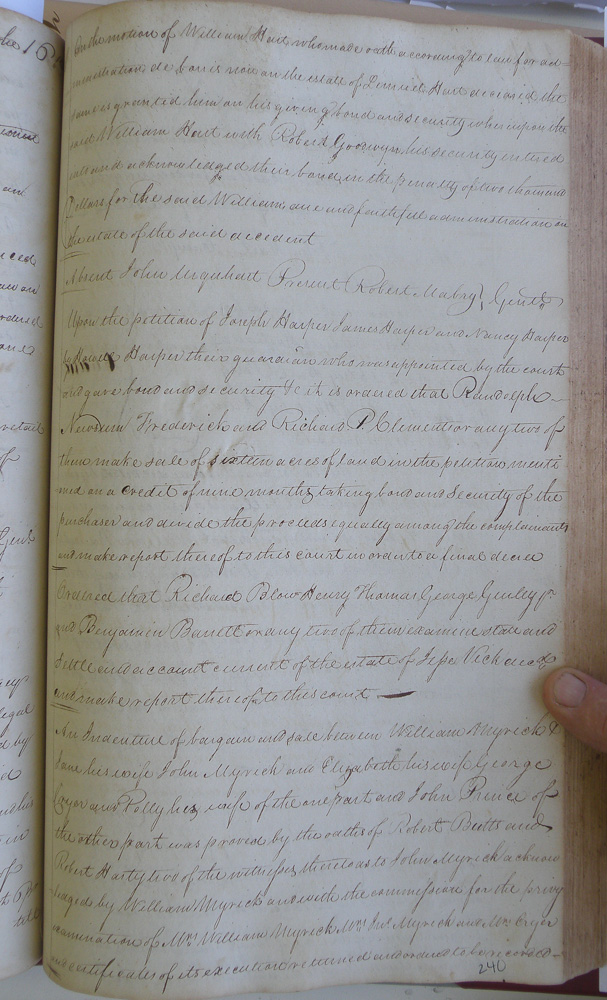 On the motion of William Hart who made oath according to law for ad=
ministration de bonis non on the estate of Lemuel Hart deceased the
same is granted him on his giving bond and security whereupon the
said William Hart with Robert Goodwyn his security entered
into and acknowledged their bond in the penalty of two thousand
Dollars for the said Williams due and faithful administration on
the estate of the said decedent
Absent John Urquhart Present Robert Mabry, Gent
Upon the petition of Joseph Harper James Harper and Nancy Harper
by Howell Harper their guardian who was appointed by the court
and gave bond and security &c it is ordered that Randolph
Newsum Frederick and Richard P. Clements or any two of
them make sale of sixteen acres of land in the petition menti
oned on a credit of nine months taking bond and security of the
purchaser and divide the proceeds equally among the complainants
and make report thereof to this court in order to a final decree
Ordered that Richard Blow Henry Thomas George Gurley jr
and Benjamin Barrett or any two of them examine state and
settle and account current of the estate of Jesse Vick decd
and make report thereof to this court
An Indenture of bargain and sale between William Myrick &
his wife John Myrick and Elizabeth his wife George
Cryer and Polly his wife of the one part and John Prince of
the other part was proved by the oaths of Robert Butts and
Robert Harty two of the witnesses thereto as to John Myrick acknow
ledged by William Myrick and with the commission for the privy
examination of Mrs William Myrick Mrs Jno Myrick and Mrs Cryer
and certificates of its execution returned and ordered to be recorded
240